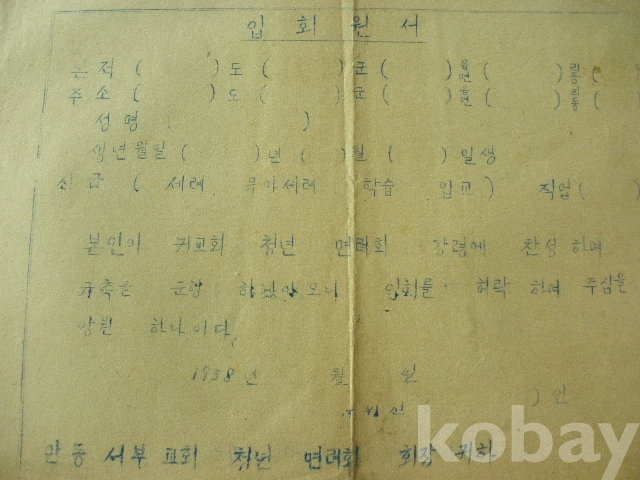 입회원서
본적 ( ) 도 ( ) 군 ( ) 읍면 ( ) 리동 (
주소 ( ) 도 ( ) 군 ( ) 읍면 ( ) 리동 (
성명 ( )
생년월일 ( ) 년 ( ) 월 ( ) 일생
신급 ( 세례 유아세례 학습 입교 ) 직업 (
본인이 귀교회 청년 면려회 강령에 찬성 하며
규측을 준행 하겠아오니 입회를 허락 하여 주심을
앙원 하나이다
1958년 월 일
) 인
안동 서부 교회 청년 면려회 회장 귀하
kobay